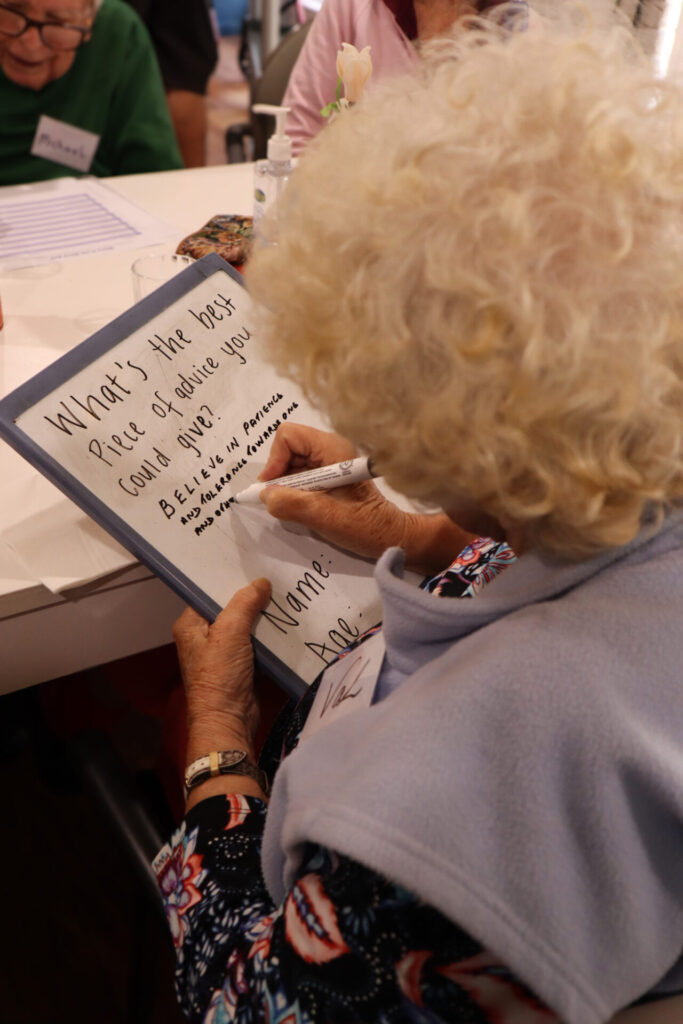 Michael
What's the best
Piece of advice you
could give?
BELIEVE IN PATIENCE
AND TOLERANCE TOWARDS ONE
AND
Name:
Age: